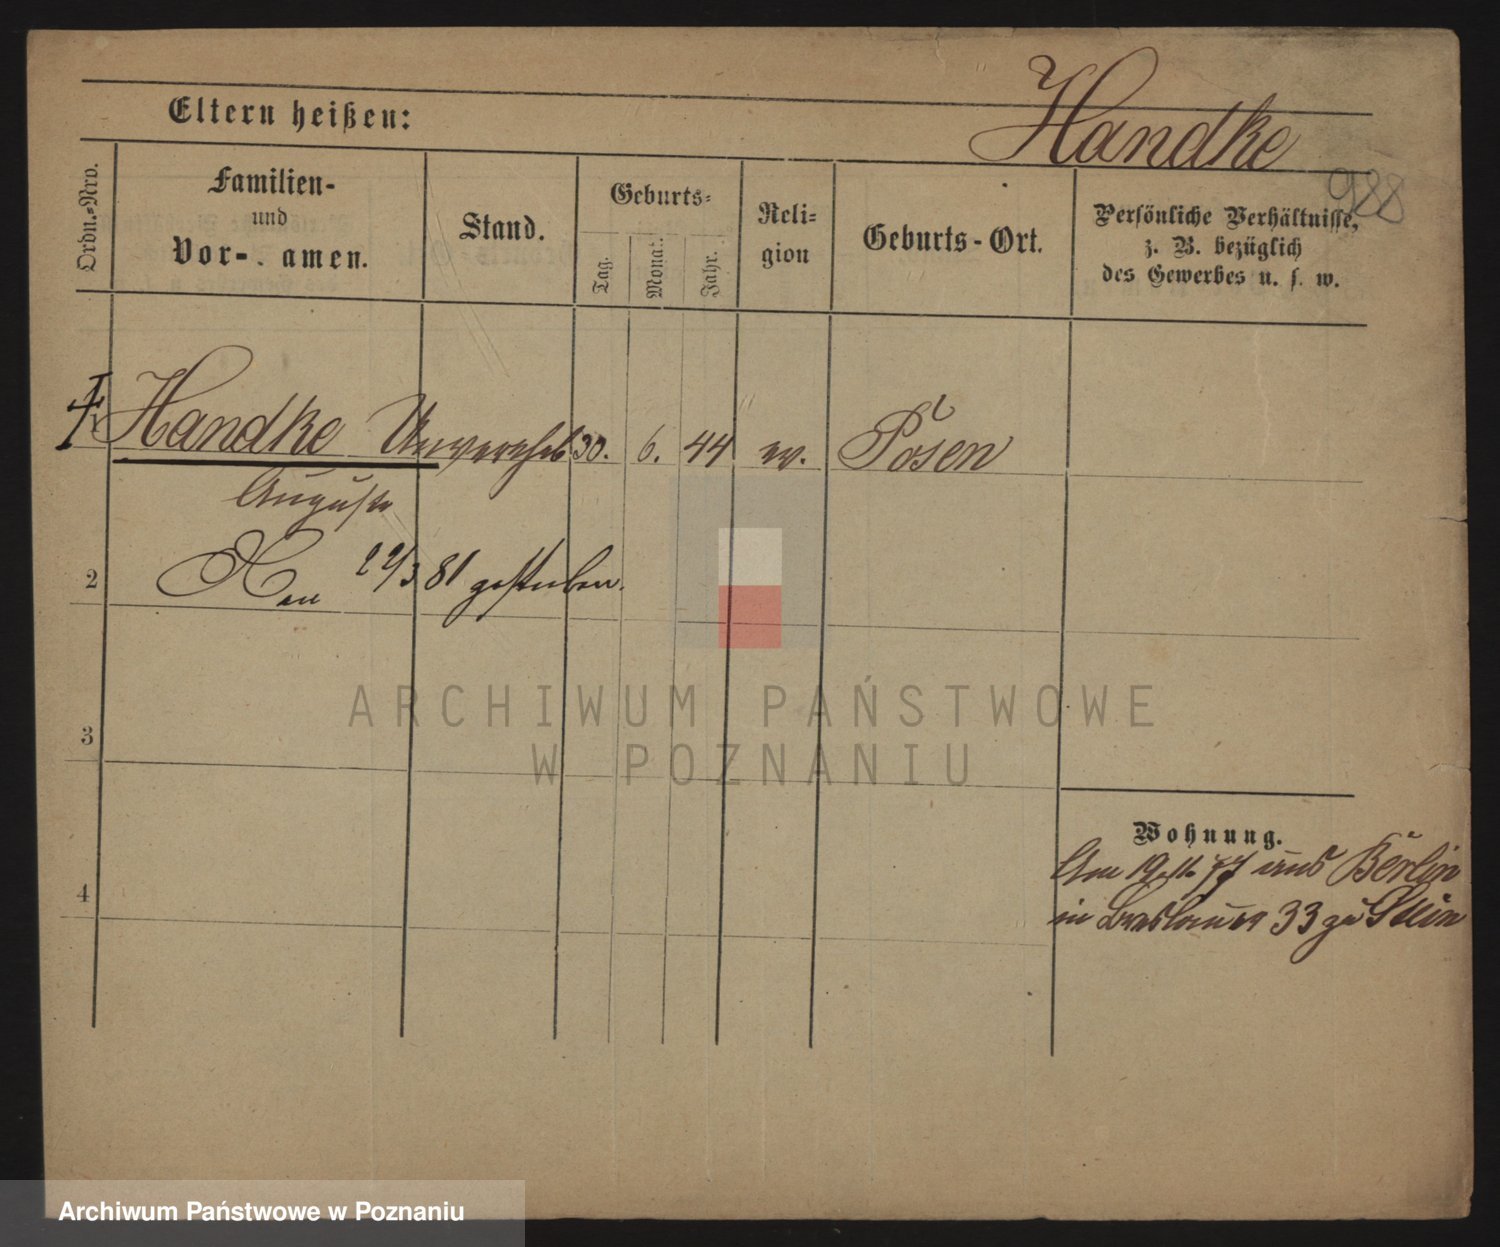 Handke
Eltern heißen:
988
Ordn.-Nro.
Familien-
und
Vor- amen.
Stand.
Geburts-
Tag.
Monat.
Jahr.
Reli-
gion
Geburts-Ort.
Persönliche Verhältnisse,
z. B. bezüglich
des Gewerbes u. s. w.
1 Handke Unverehel 30. 6. 44 ev. Posen
Auguste
2 am 22/3 81 gestorben.
3
4
Wohnung.
Am 19.11.77 aus Berlin
in Breslauer 33 zu Stein
ARCHIWUM PAŃSTWOWE
W POZNANIU
Archiwum Państwowe w Poznaniu